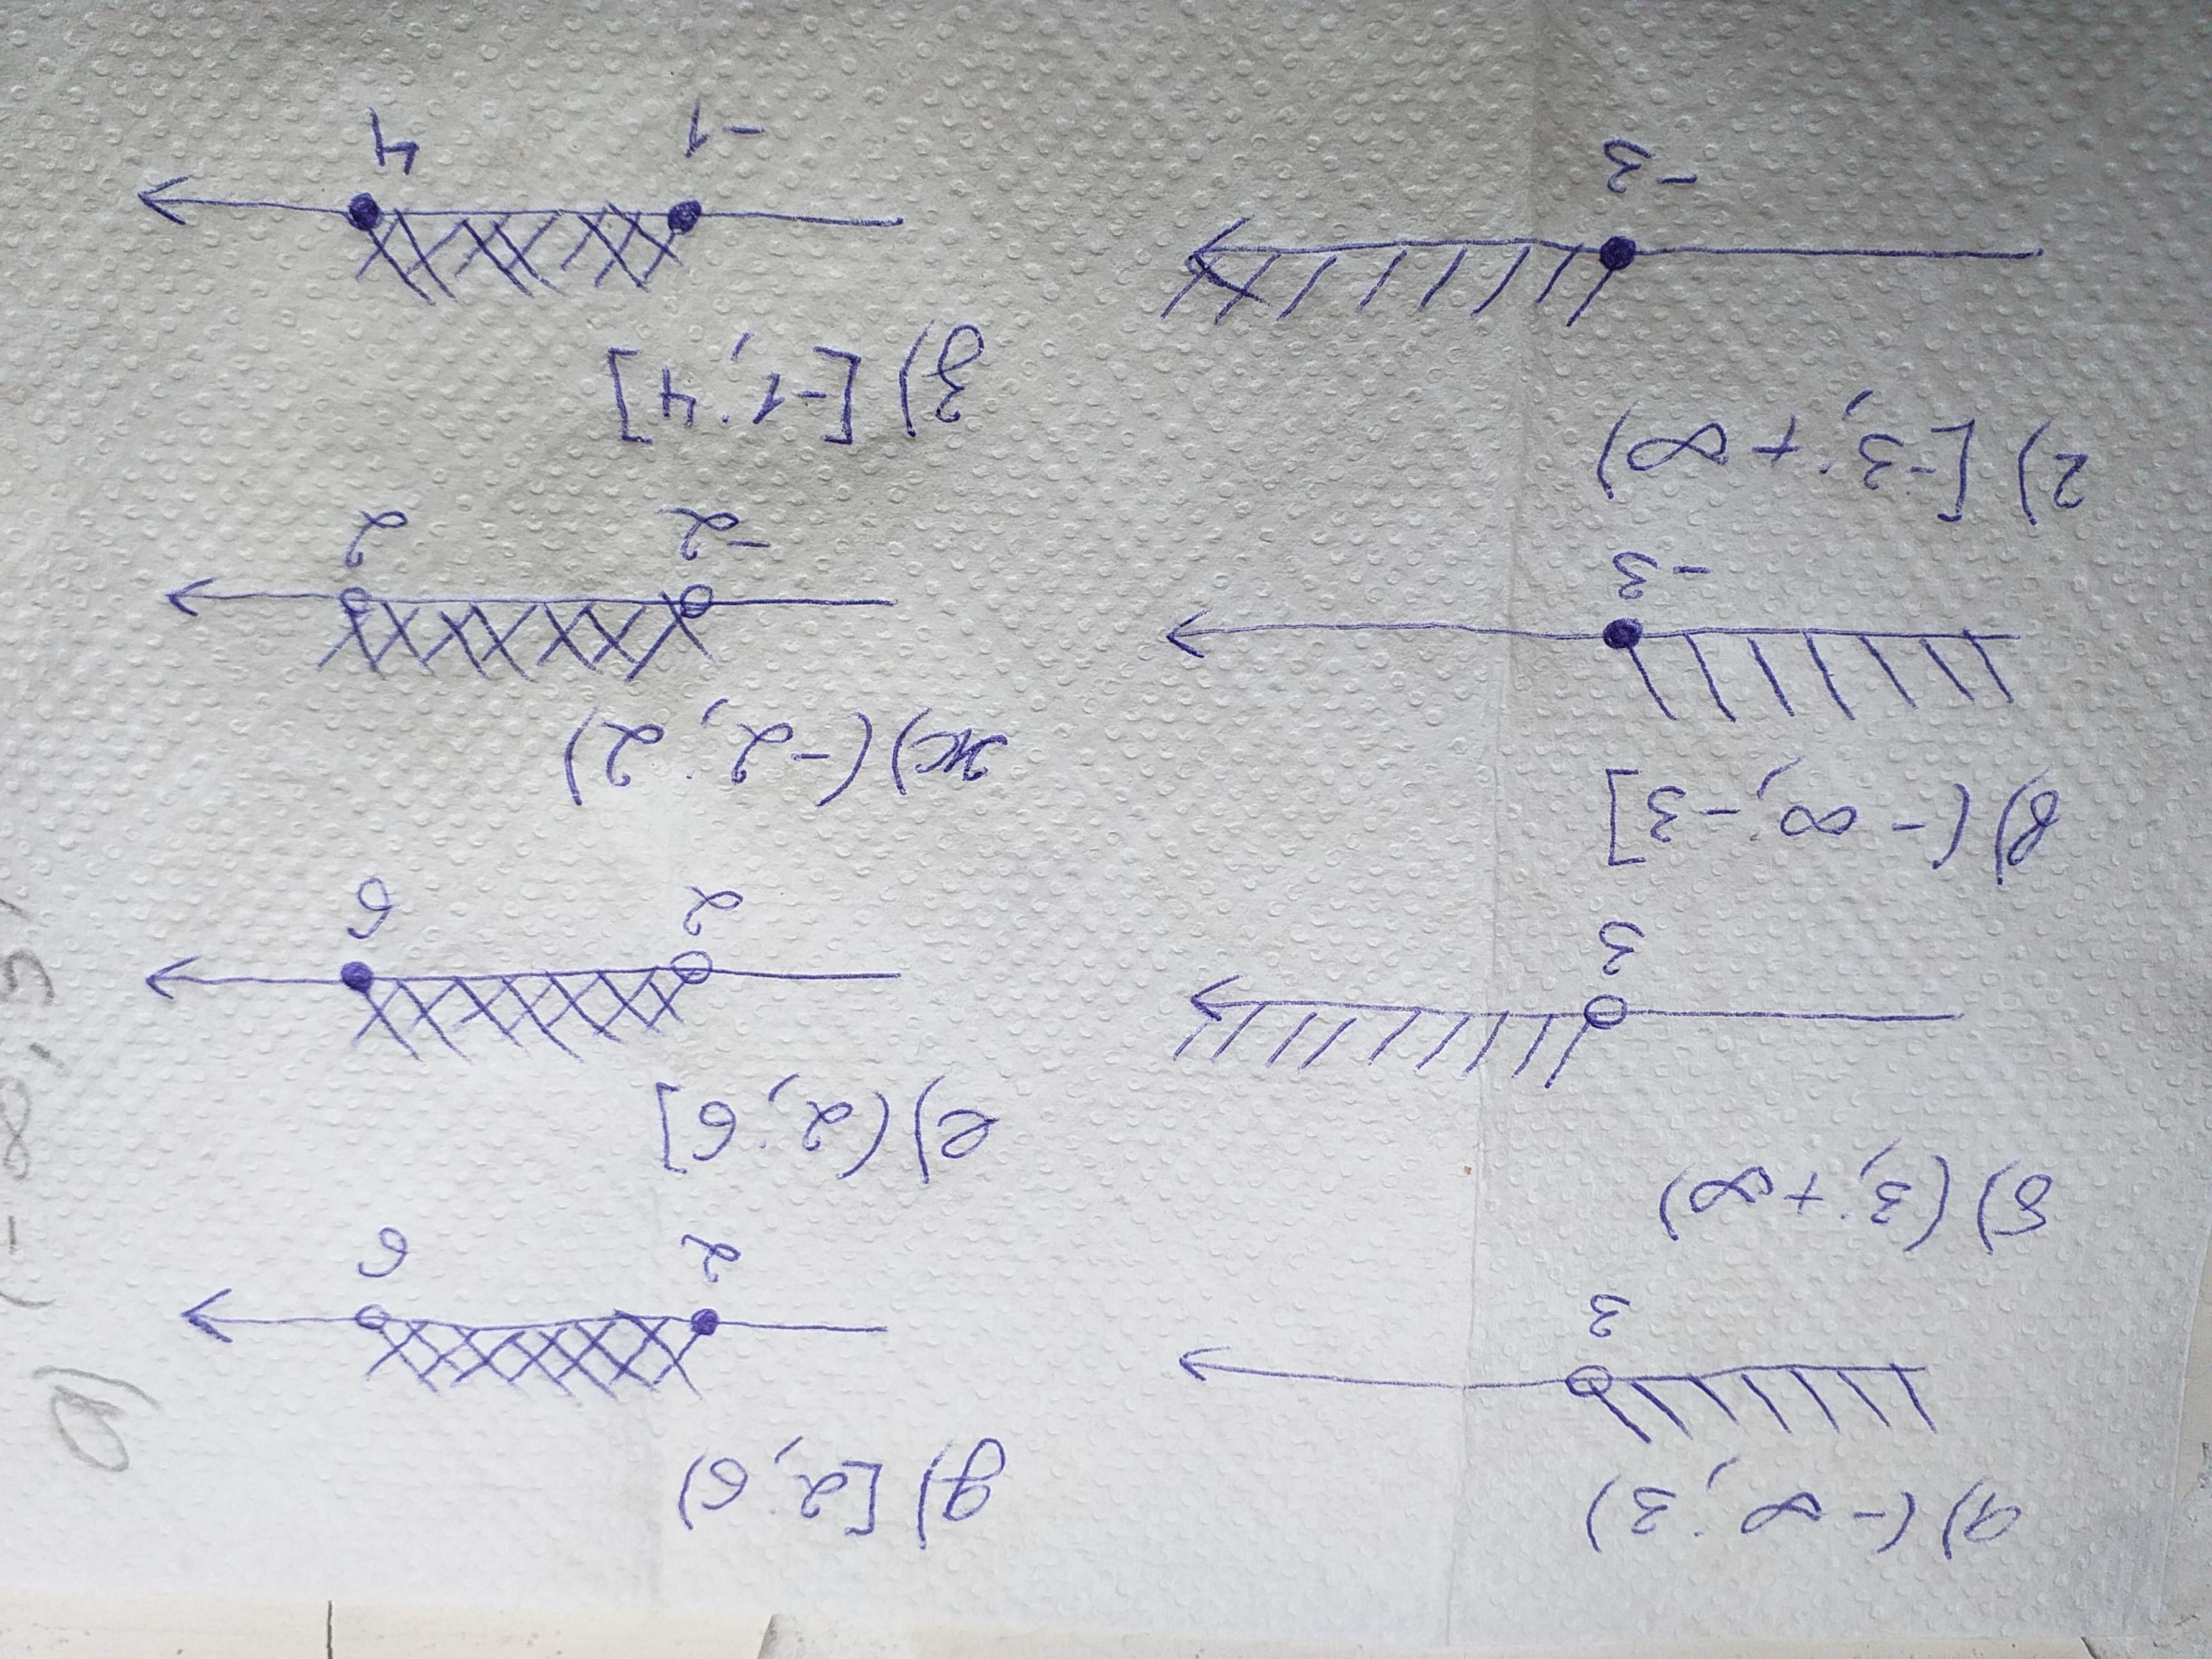 а) (-∞; 3)
3
б) (3; +∞)
3
в) (-∞; -3]
-3
г) [-3; +∞)
-3
д) [2; 6)
2 6
е) (2; 6]
2 6
ж) (-2; 2)
-2 2
з) [-1; 4]
-1 4
а)